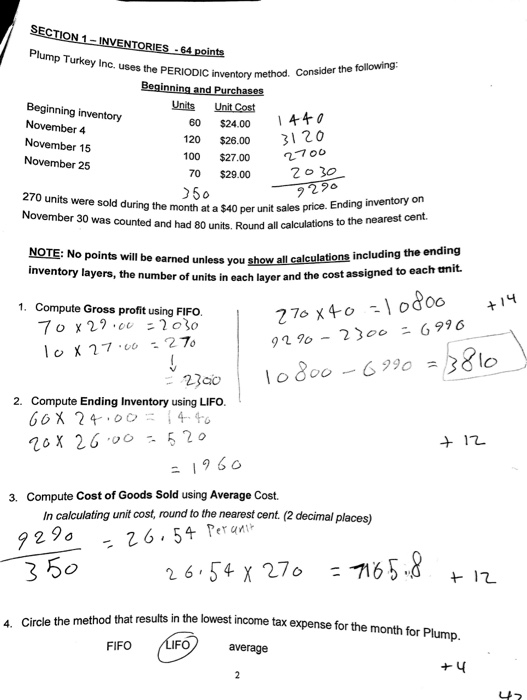 SECTION 1 – INVENTORIES - 64 points
Plump Turkey Inc. uses the PERIODIC inventory method. Consider the following:
Beginning and Purchases
Units Unit Cost
Beginning inventory 60 $24.00 1440
November 4 120 $26.00 3120
November 15 100 $27.00 2700
November 25 70 $29.00 2030
350 9290
270 units were sold during the month at a $40 per unit sales price. Ending inventory on
November 30 was counted and had 80 units. Round all calculations to the nearest cent.
NOTE: No points will be earned unless you show all calculations including the ending
inventory layers, the number of units in each layer and the cost assigned to each unit.
1. Compute Gross profit using FIFO. 270 x 40 = 10800 +14
70 x 29.00 = 2030 9290 - 2300 = 6990
10 x 27.00 = 270
↓
= 2300 10800 - 6990 = 3810
2. Compute Ending Inventory using LIFO.
60 x 24.00 = 1440
20 x 26.00 = 520 + 12
= 1960
3. Compute Cost of Goods Sold using Average Cost.
In calculating unit cost, round to the nearest cent. (2 decimal places)
9290 = 26.54 Per unit
350 26.54 x 270 = 7165.8 + 12
4. Circle the method that results in the lowest income tax expense for the month for Plump.
FIFO LIFO average
+4
2
42